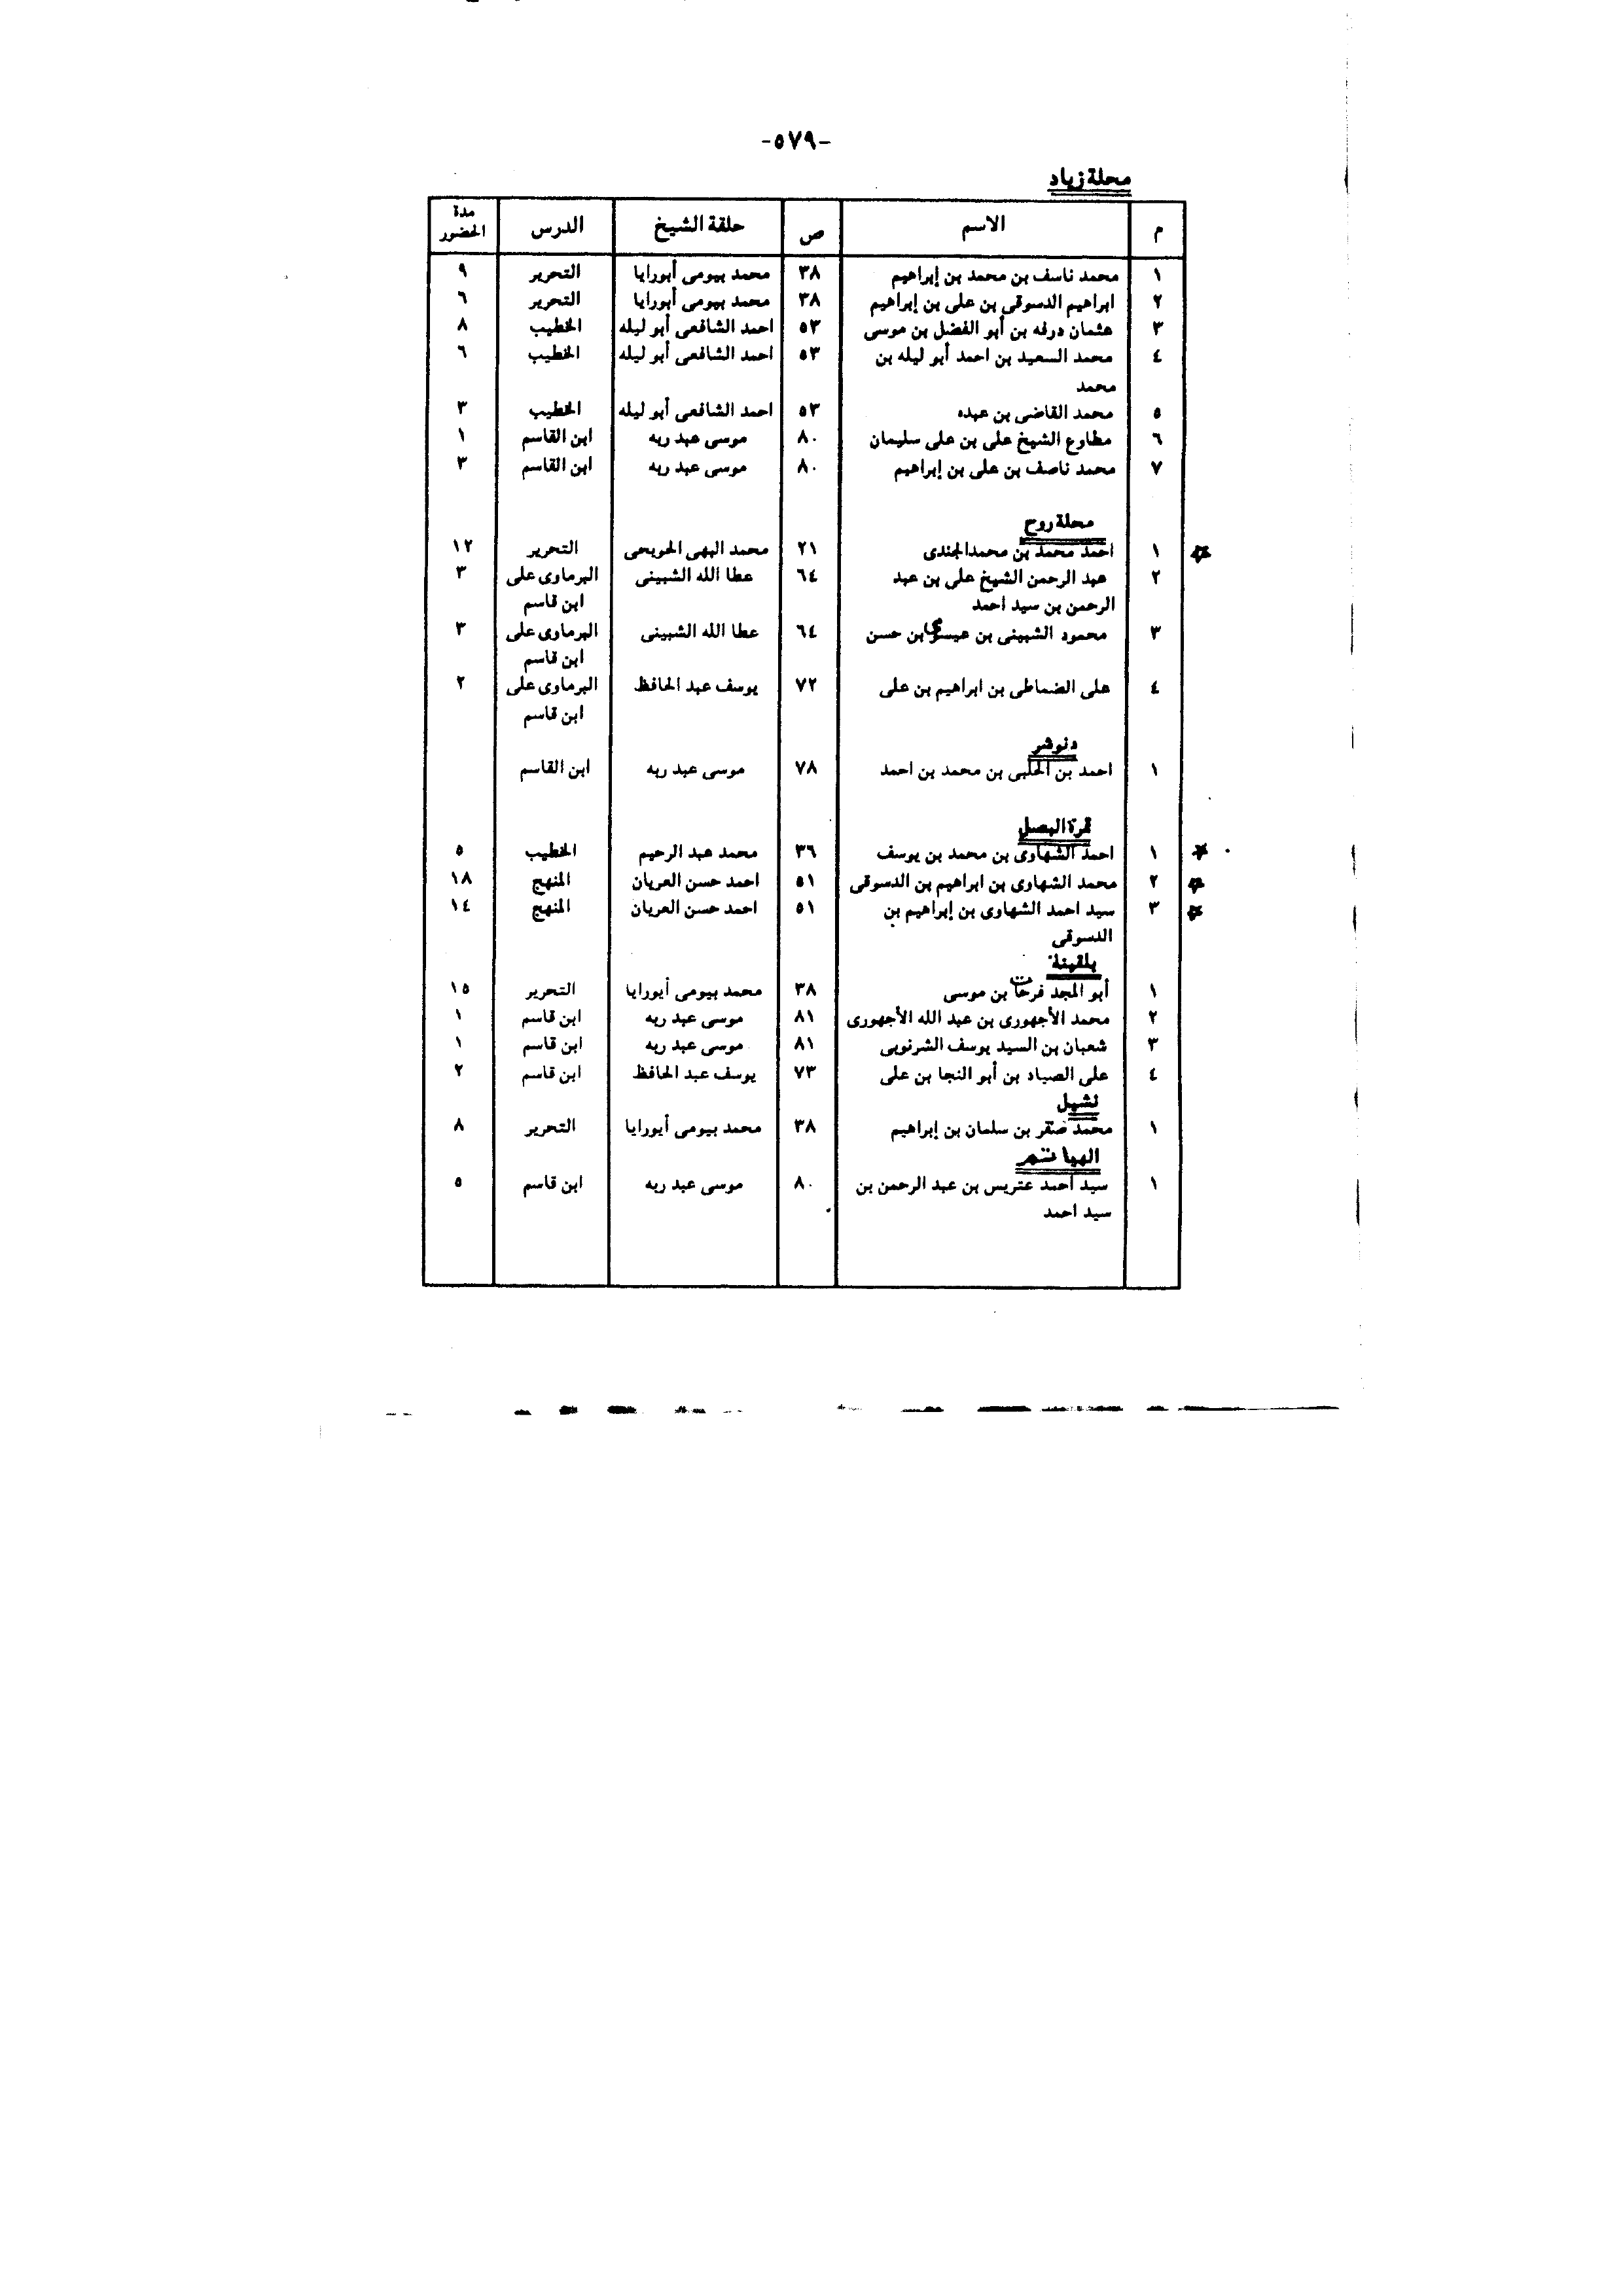 -٥٧٩-
محلة زياد
م الاسم ص حلقة الشيخ الدرس مدة الحضور
١ محمد ناسف بن محمد بن إبراهيم ٣٨ محمد بيومى أبورايا التحرير ٩
٢ ابراهيم الدسوقى بن على بن إبراهيم ٣٨ محمد بيومى أبورايا التحرير ٦
٣ عثمان درفه بن أبو الفضل بن موسى ٥٣ احمد الشافعى أبو ليله الخطيب ٨
٤ محمد السعيد بن احمد أبو ليله بن ٥٣ احمد الشافعى أبو ليله الخطيب ٦
محمد
٥ محمد القاضى بن عبده ٥٣ احمد الشافعى أبو ليله الخطيب ٣
٦ مطاوع الشيخ على بن على سليمان ٨٠ موسى عبد ربه ابن القاسم ١
٧ محمد ناصف بن على بن إبراهيم ٨٠ موسى عبد ربه ابن القاسم ٣
محلة روح
١ احمد محمد بن محمد الجندى ٢١ محمد البهى الحويحى التحرير ١٢
٢ عبد الرحمن الشيخ على بن عبد ٦٤ عطا الله الشبينى البرماوى على ٣
الرحمن بن سيد احمد ابن قاسم
٣ محمود الشبينى بن عيسوى بن حسن ٦٤ عطا الله الشبينى البرماوى على ٣
ابن قاسم
٤ على الضماطى بن ابراهيم بن على ٧٢ يوسف عبد الحافظ البرماوى على ٢
ابن قاسم
دنوشر
١ احمد بن الحلبى بن محمد بن احمد ٧٨ موسى عبد ربه ابن القاسم
نمرة البصل
١ احمد الشهاوى بن محمد بن يوسف ٣٦ محمد عبد الرحيم الخطيب ٥
٢ محمد الشهاوى بن ابراهيم بن الدسوقى ٥١ احمد حسن العريان المنهج ١٨
٣ سيد احمد الشهاوى بن إبراهيم بن ٥١ احمد حسن العريان المنهج ١٤
الدسوقى
بلقينة
١ أبو المجد فرحات بن موسى ٣٨ محمد بيومى أبورايا التحرير ١٥
٢ محمد الأجهورى بن عبد الله الأجهورى ٨١ موسى عبد ربه ابن قاسم ١
٣ شعبان بن السيد يوسف الشرنوبى ٨١ موسى عبد ربه ابن قاسم ١
٤ على الصياد بن أبو النجا بن على ٧٣ يوسف عبد الحافظ ابن قاسم ٢
نشيل
١ محمد صقر بن سلمان بن إبراهيم ٣٨ محمد بيومى أبورايا التحرير ٨
الهياتم
١ سيد أحمد عتريس بن عبد الرحمن بن ٨٠ موسى عبد ربه ابن قاسم ٥
سيد احمد